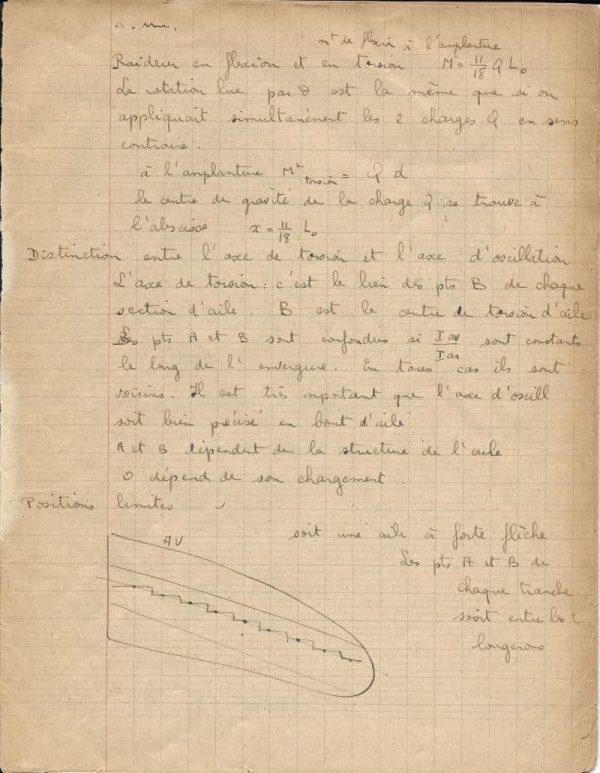 mt de flexion à l'emplanture
Raideur en flexion et en torsion M = 11/18 Q L0
La rotation lue par θ est la même que si on
appliquait simultanément les 2 charges Q en sens
contraire.
à l'emplanture Mt torsion = Q d
le centre de gravité de la charge Q se trouve à
l'abscisse x = 11/18 L0
Distinction entre l'axe de torsion et l'axe d'oscillation
L'axe de torsion : c'est le lien des pts B de chaque
section d'aile. B est le centre de torsion d'aile
Les pts A et B sont confondus si I av / I ar sont constants
le long de l'envergure. En tous cas ils sont
voisins. Il est très important que l'axe d'oscill
soit bien précisé en bout d'aile
A et B dépendent de la structure de l'aile
O dépend de son chargement.
Positions limites
AV
soit une aile à forte flèche
Les pts A et B de
chaque tranche
sont entre les 2
longerons